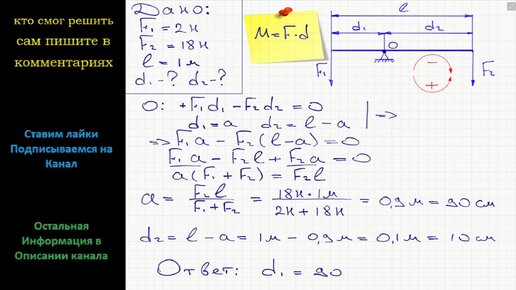 кто смог решить
сам пишите в
комментариях
Ставим лайки
Подписываемся на
Канал
Остальная
Информация в
Описании канала
Дано:
F₁ = 2Н
F₂ = 18Н
l = 1м
d₁ - ? d₂ - ?
M = F·d
l
d₁ d₂
O
F₁ F₂
+
−
O: +F₁d₁ − F₂d₂ = 0
d₁ = a d₂ = l − a | =>
=> F₁a − F₂(l−a) = 0
F₁a − F₂l + F₂a = 0
a(F₁ + F₂) = F₂l
a = F₂l / (F₁+F₂) = 18Н·1м / (2Н+18Н) = 0,9м = 90см
d₂ = l − a = 1м − 0,9м = 0,1м = 10см
Ответ: d₁ = 90